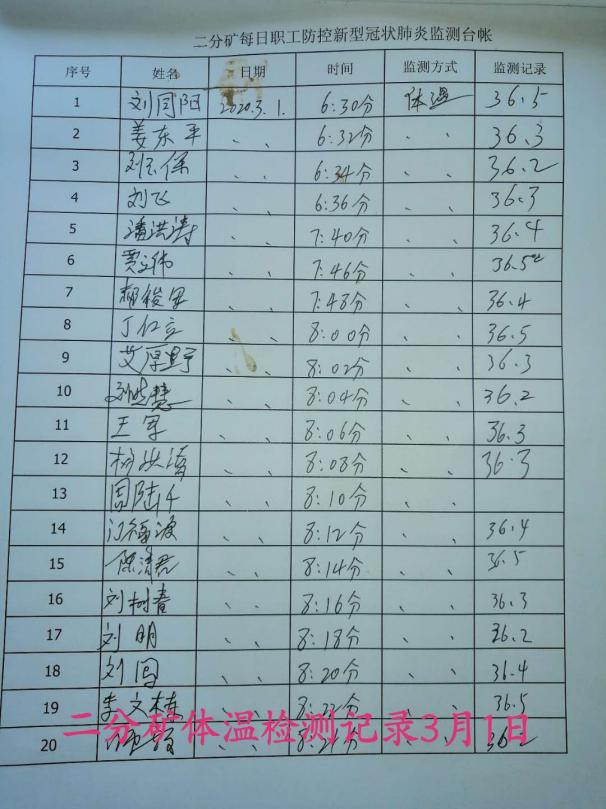 二分矿每日职工防控新型冠状肺炎监测台帐
序号 姓名 日期 时间 监测方式 监测记录
1 刘闯阳 2020.3.1. 6:30分 体温 36.5
2 姜东平 、、 6:32分 、、 36.3
3 、、 6:34分 、、 36.2
4 刘飞 、、 6:36分 、、 36.3
5 潘洪涛 、、 7:40分 、、 36.4
6 贾立伟 、、 7:46分 、、 36.5
7 、、 7:48分 、、 36.4
8 丁仁立 、、 8:00分 、、 36.5
9 艾厚野 、、 8:02分 、、 36.3
10 慧 、、 8:04分 、、 36.2
11 王军 、、 8:06分 、、 36.3
12 、、 8:08分 、、 36.3
13 周陆 、、 8:10分 、、
14 、、 8:12分 、、 36.4
15 、、 8:14分 、、 36.5
16 刘树春 、、 8:16分 、、 36.3
17 刘明 、、 8:18分 、、 36.2
18 刘闯 、、 8:20分 、、 36.4
19 李文栋 、、 8:22分 、、 36.5
二分矿体温检测记录3月1日
20 、、 、、 36.2